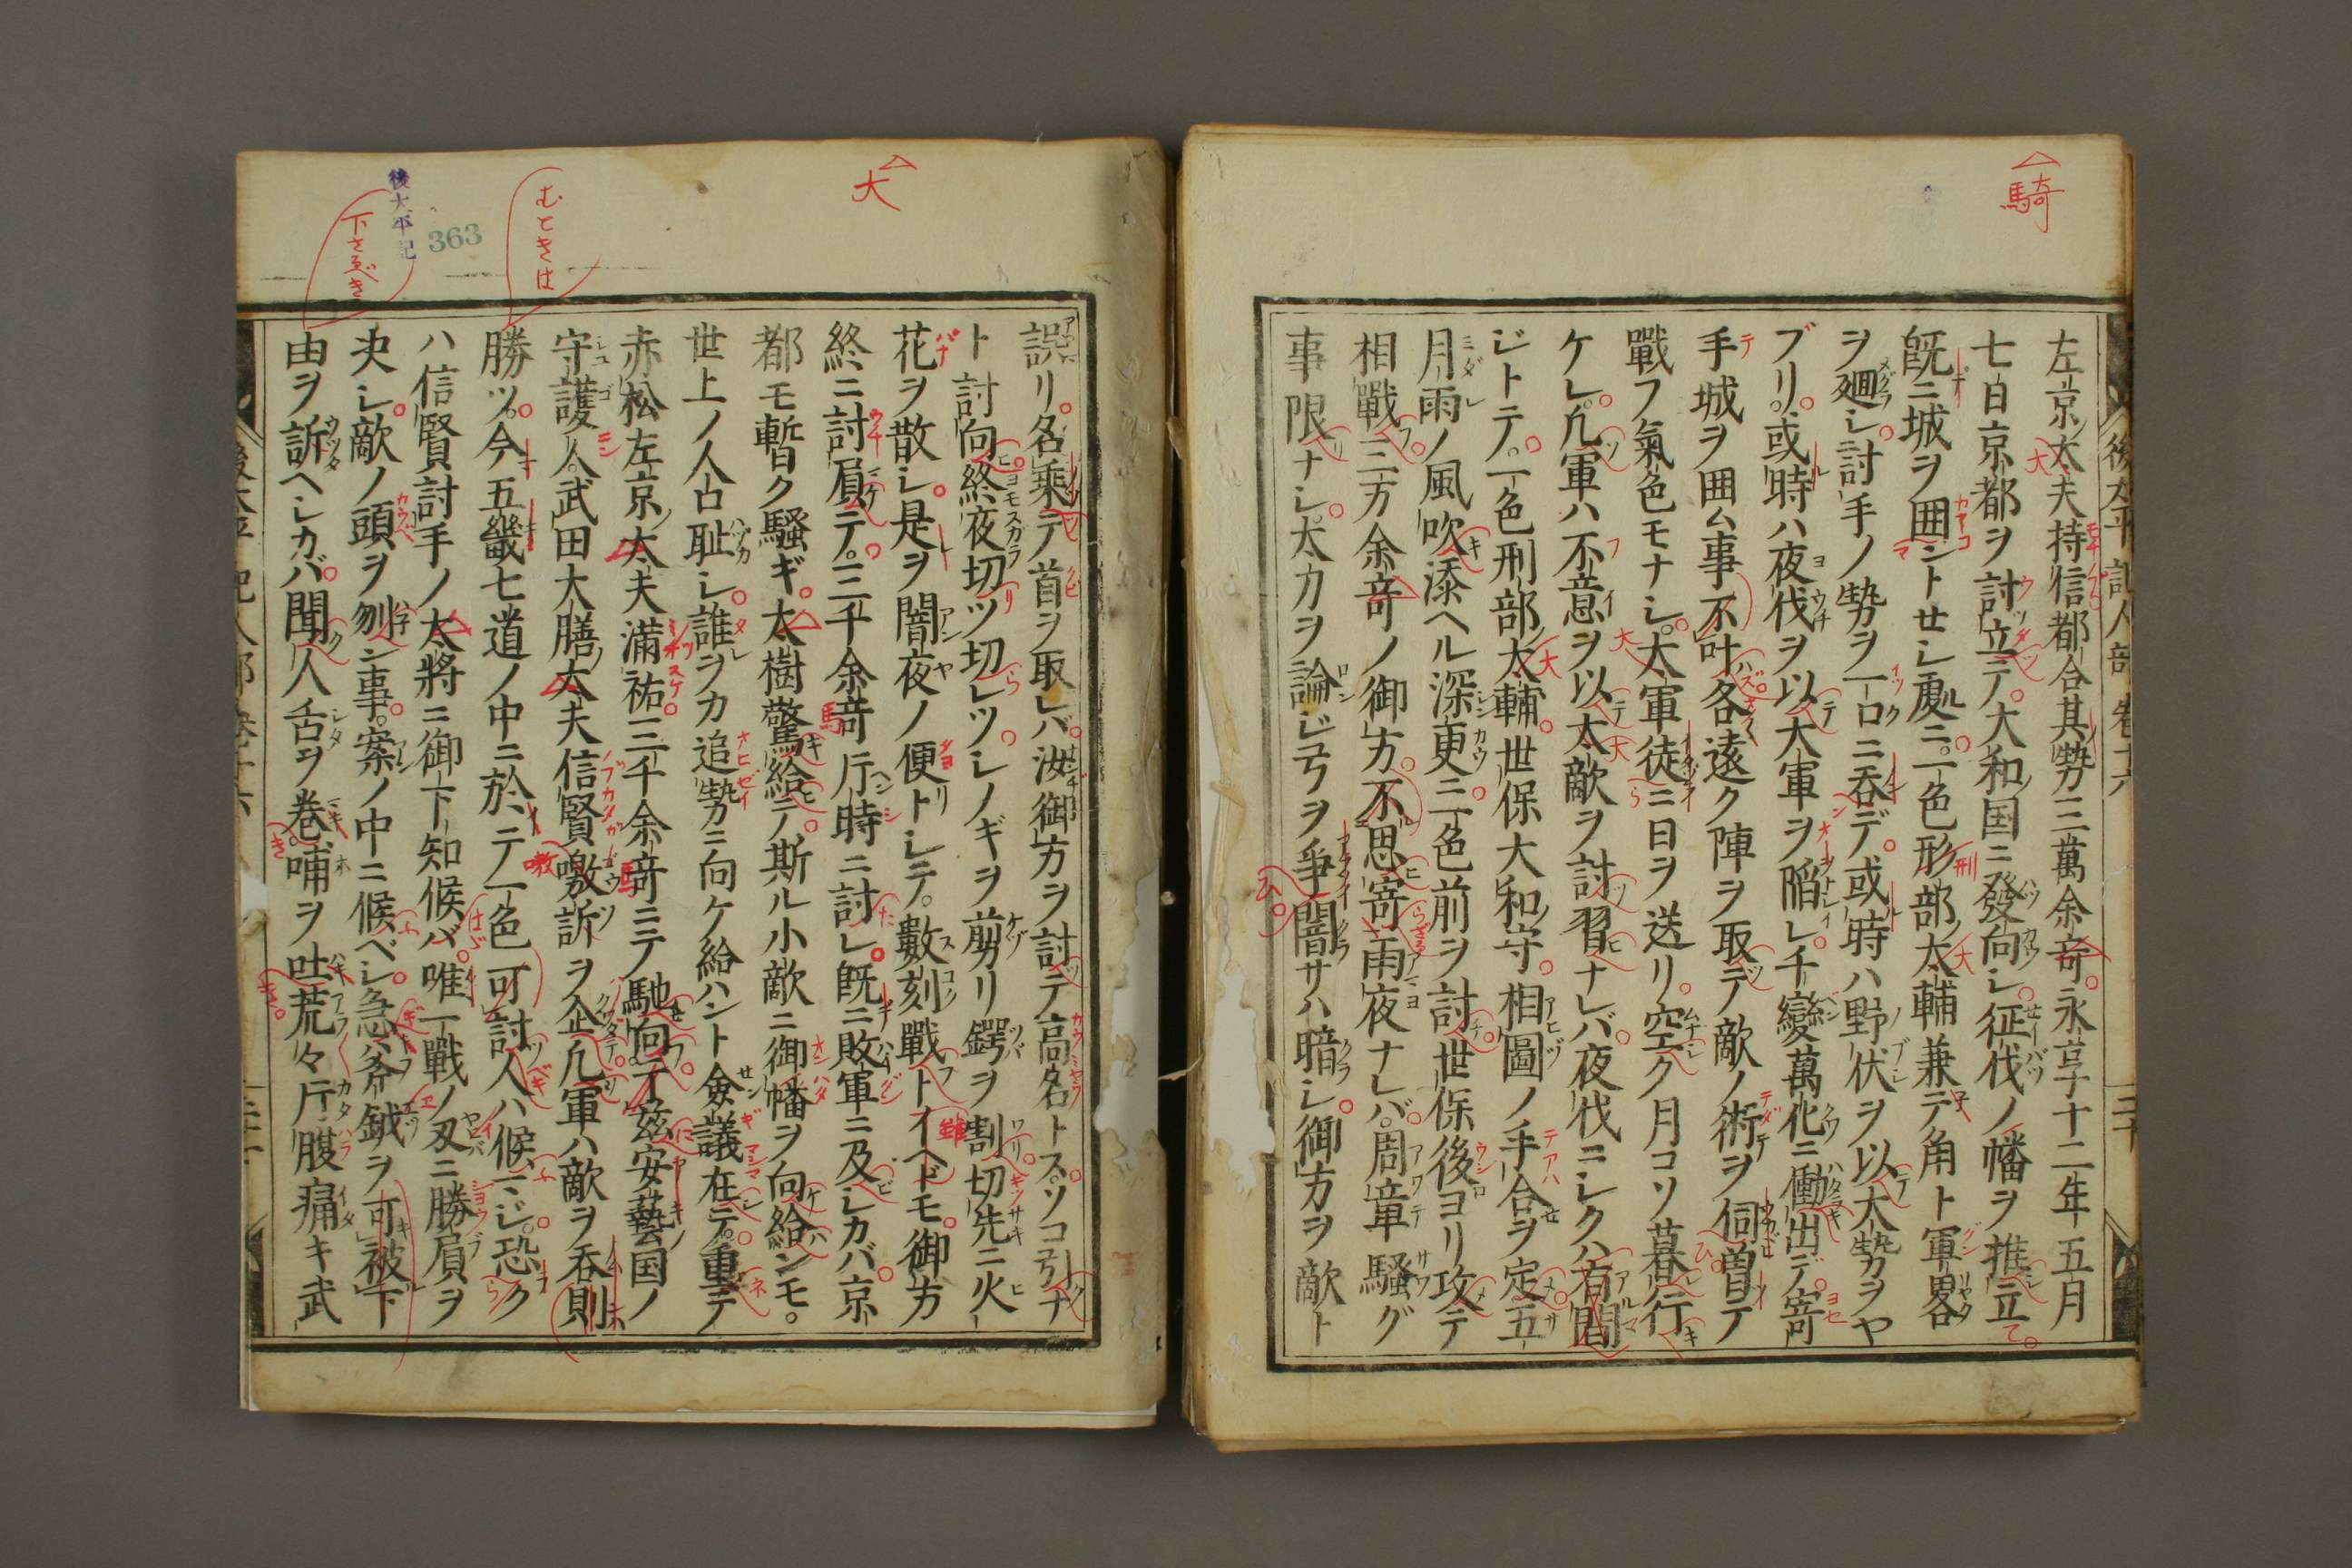 騎
左京大夫持信都合其勢三萬余竒永享十二年五月
七日京都ヲ討立テ大和国ニ發向シ征伐ノ幡ヲ推立
既ニ城ヲ囲ントセシ處ニ一色形部太輔兼テ角ト軍畧
ヲ廻シ討手ノ勢ヲ一口ニ呑デ或時ハ野伏ヲ以大勢ヲヤ
ブリ或時ハ夜伐ヲ以大軍ヲ陥レ千變萬化ニ働出デ寄
手城ヲ囲ム事不叶各遠ク陣ヲ取テ敵ノ術ヲ伺曽テ
戰フ氣色モナシ大軍徒ニ日ヲ送リ空ク月コソ暮行
ケレ凡軍ハ不意ヲ以太敵ヲ討習ナレバ夜伐ニシクハ有間
ジトテ一色刑部太輔世保大和守相圖ノ手合ヲ定五
月雨ノ風吹添ヘル深更ニ一色前ヲ討世保後ヨリ攻テ
相戰三万余竒ノ御方不思寄雨夜ナレバ周章騒グ
事限ナシ太カヲ論ジ弓ヲ爭闇サハ暗シ御方ヲ敵ト
後太平記人部 巻十六
三十
大
むときは
後太平記
363
下さるべき
誤リ名乗テ首ヲ取バ汝御方ヲ討テ高名トスソコ引ナ
ト討向終夜切ツ切レツシノギヲ剪リ鍔ヲ割切先ニ火
花ヲ散シ是ヲ闇夜ノ便トシテ數刻戰トイヘドモ御方
終ニ討屓テ三千余竒片時ニ討レ既ニ敗軍ニ及シカバ京
都モ暫ク騒ギ太樹驚給テ斯ル小敵ニ御幡ヲ向給ンモ
世上ノ人口耻シ誰ヲカ追勢ニ向ケ給ハント僉議在テ重テ
赤松左京太夫滿祐三千余竒ニテ馳向フ茲安藝国ノ
守護人武田大膳太夫信賢嗷訴ヲ企凡軍ハ敵ヲ呑則
勝ツ今五畿七道ノ中ニ於テ一色可討人ハ候ハジ恐ク
ハ信賢討手ノ太將ニ御下知候バ唯一戰ノ刄ニ勝屓ヲ
决シ敵ノ頭ヲ刎ン事案ノ中ニ候ベシ急斧鉞ヲ可被下
由ヲ訴ヘシカバ聞人舌ヲ巻哺ヲ吐荒々片腹痛キ武